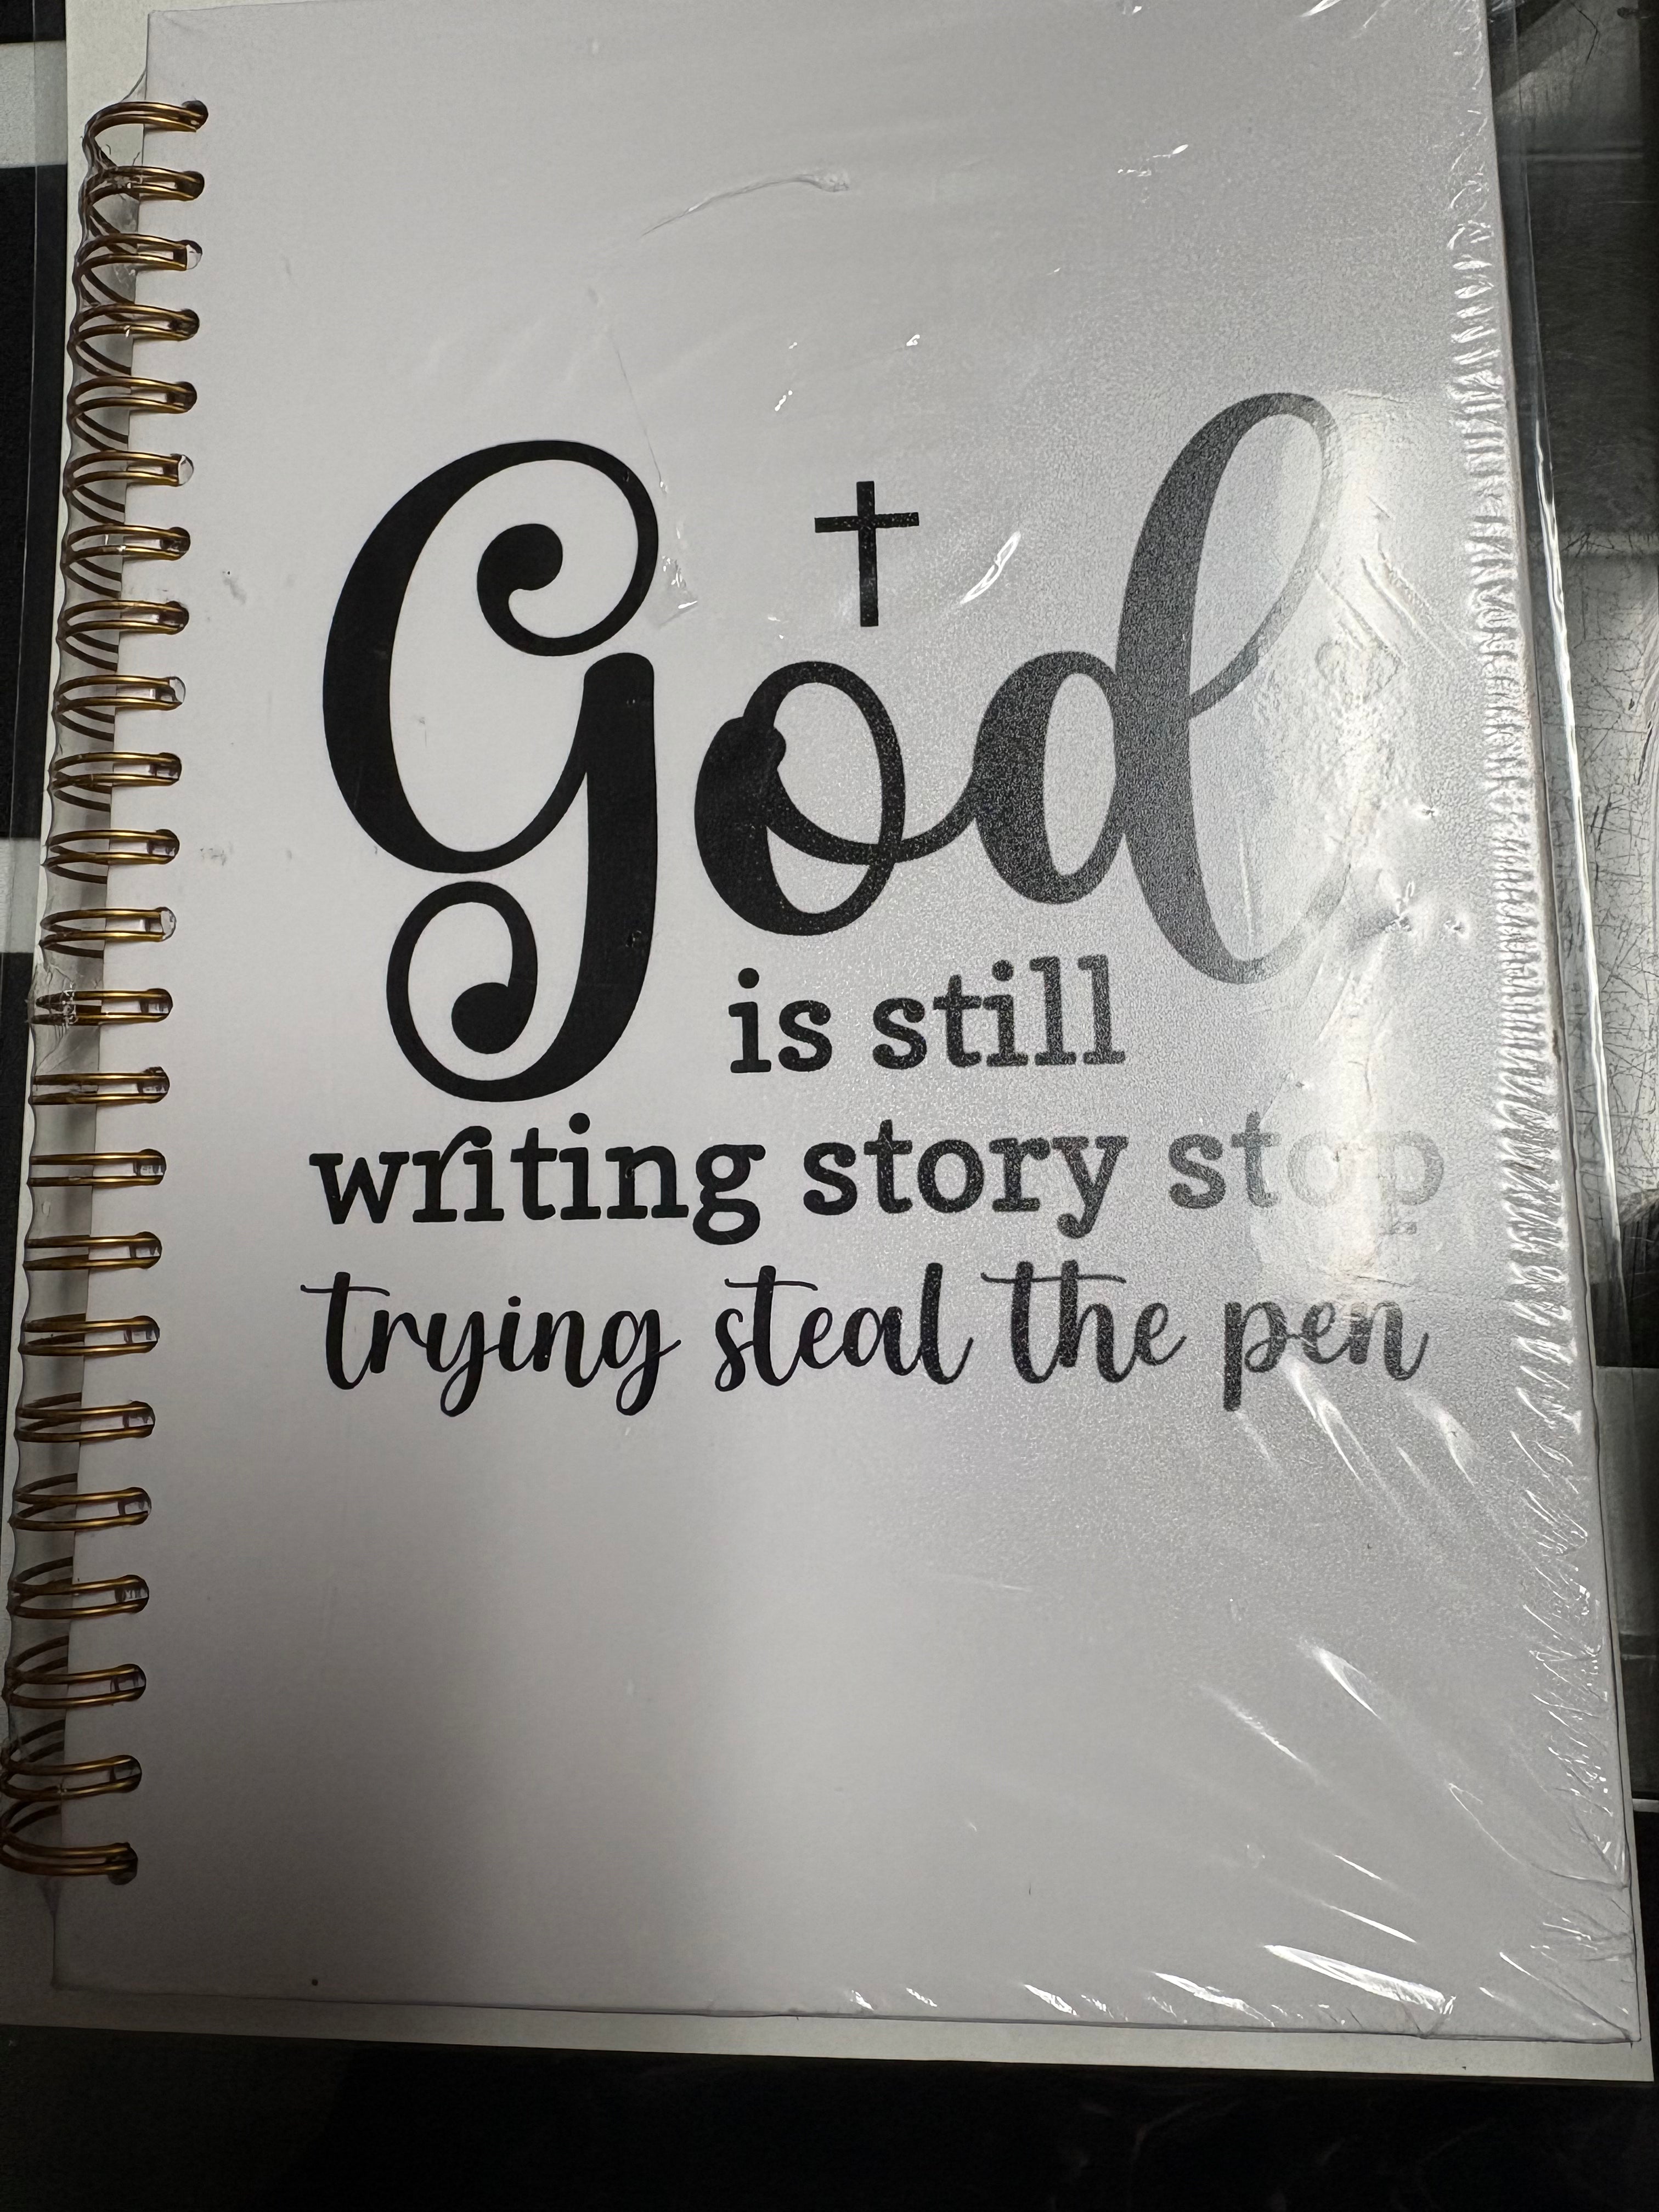 God
is still
writing story stop
trying steal the pen